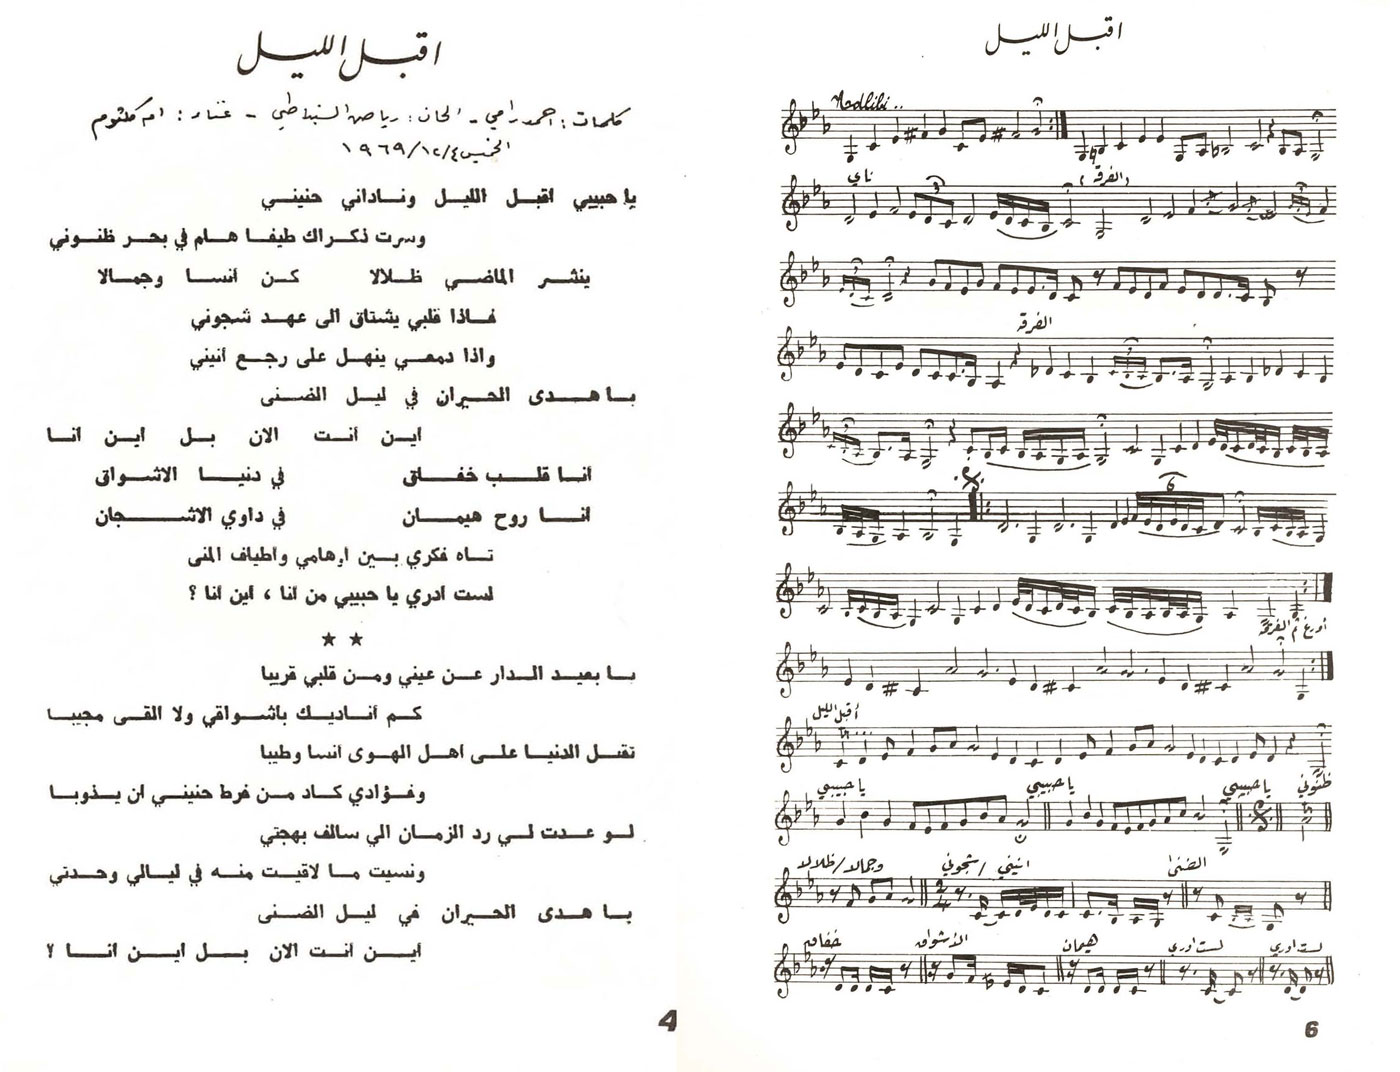 اقبل الليل
كلمات: احمد رامي - الحان: رياض السنباطي - غناء: ام كلثوم
الخميس ١٩٦٩/١٢/٤
يا حبيبي اقبل الليل وناداني حنيني
وسرت ذكراك طيفا هام في بحر ظنوني
ينشر الماضي ظلالا كن أنسا وجمالا
فاذا قلبي يشتاق الى عهد شجوني
واذا دمعي ينهل على رجع أنيني
يا هدى الحيران في ليل الضنى
اين أنت الان بل اين انا
أنا قلب خفاق في دنيا الاشواق
أنا روح هيمان في داوي الاشجان
تاه فكري بين اوهامي واطياف المنى
لست ادري يا حبيبي من أنا ، اين أنا ؟
★ ★
يا بعيد الدار عن عيني ومن قلبي قريبا
كم أناديك باشواقي ولا القى مجيبا
تقبل الدنيا على اهل الهوى انسا وطيبا
وفؤادي كاد من فرط حنيني ان يذوبا
لو عدت لي رد الزمان الي سالف بهجتي
ونسيت ما لاقيت منه في ليالي وحدتي
يا هدى الحيران في ليل الضنى
أين أنت الان بل اين انا ؟
4
اقبل الليل
Adlibi..
ناي (الفرقة)
الفرقة
6
أورغ ثم الفرقة
أقبل الليل
يا حبيبي يا حبيبي يا حبيبي ظنوني
وجمالا/ظلالا انيني/شجوني الضنى
2/4
خفاق الأشواق هيمان لست ادري لست ادري
6